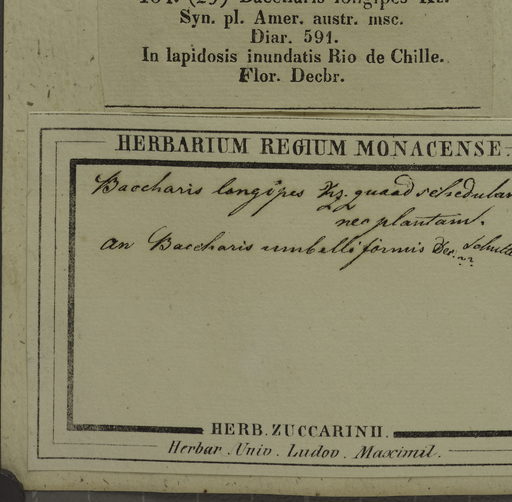 184. (29) Baccharis longipes Kz.
Syn. pl. Amer. austr. msc.
Diar. 591.
In lapidosis inundatis Rio de Chille.
Flor. Decbr.
HERBARIUM REGIUM MONACENSE.
Baccharis longipes Kz. quoad schedulam
nec plantam.
an Baccharis umbelliformis Dec.
HERB. ZUCCARINII.
Herbar. Univ. Ludov. Maximil.